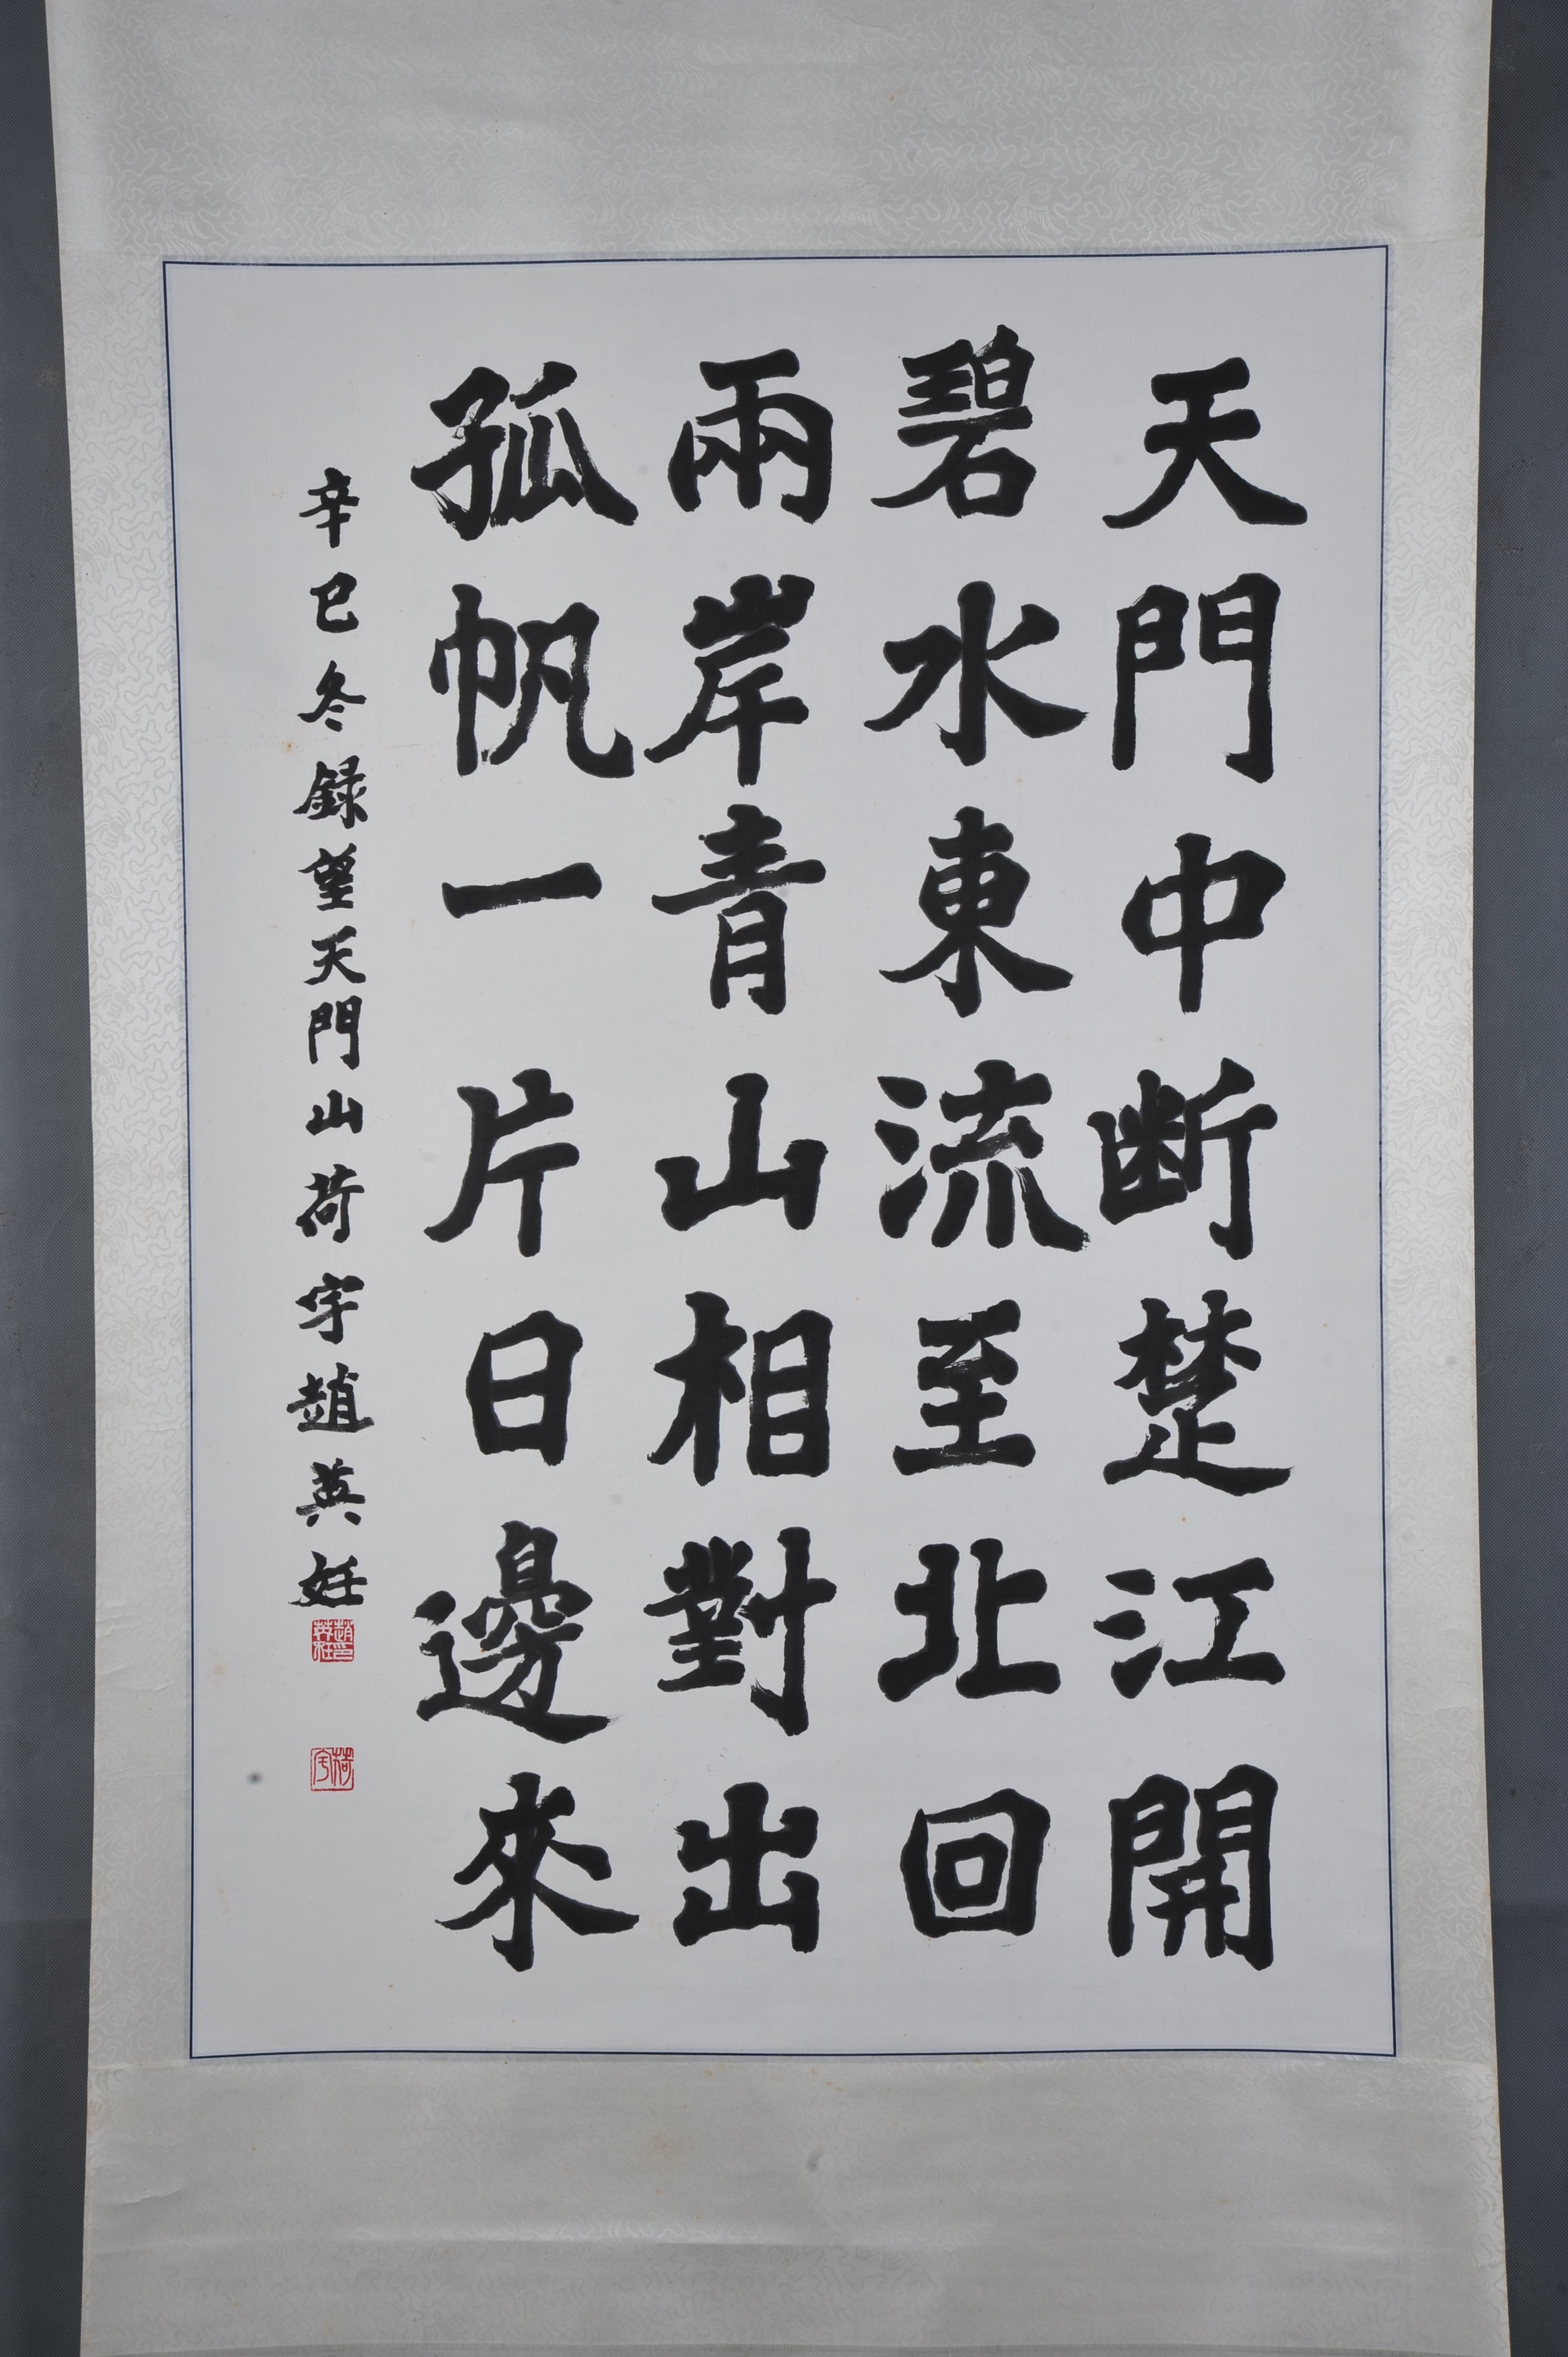 天門中断楚江開
碧水東流至北回
兩岸青山相對出
孤帆一片日邊來
辛巳冬録望天門山荷宇趙英妊
荷宇